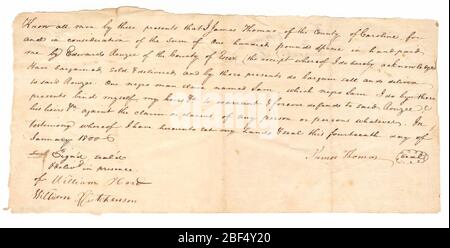 Know all men by these presents that I James Thomas of the County of Caroline for
and in consideration of the Sum of One hundred pounds specie in hand paid
me by Edward Rouzee of the County of Essex (the receipt whereof I do hereby acknowledge)
Have bargained, Sold & delivered, and by these presents do bargain sell and deliver
to said Rouzee One negro man slave named Sam, which negro Sam I do by these
presents bind myself, my heirs &c to warrant & forever defend to said Rouzee &
his heirs &c against the claim & demand of any person or persons whatever. In
testimony whereof I have hereunto set my hand & seal this fourteenth day of
January 1800
Sign'd seal'd James Thomas (Seal)
& deliv'd in presence
of William Hord
William Hutcheson
alamy
Image ID: 2BF4Y20
www.alamy.com